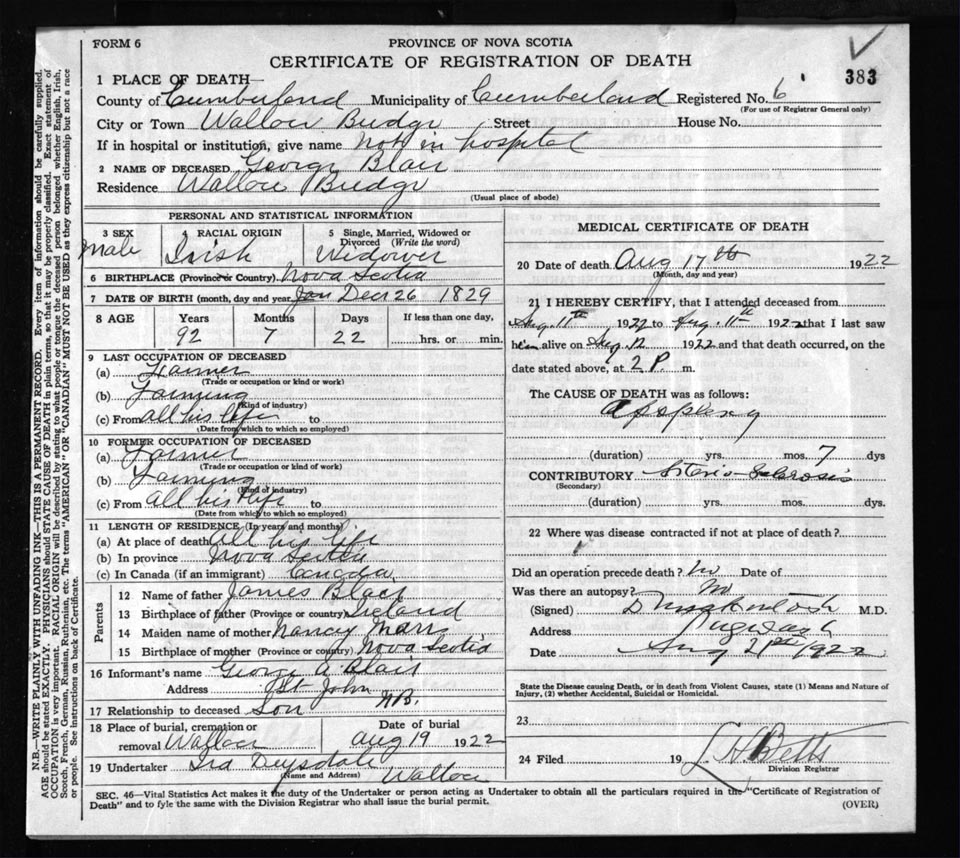 FORM 6
PROVINCE OF NOVA SCOTIA
CERTIFICATE OF REGISTRATION OF DEATH
383
1 PLACE OF DEATH—
County of Cumberland Municipality of Cumberland Registered No. 6
(For use of Registrar General only)
City or Town Wallace Bridge Street House No.
If in hospital or institution, give name Not in hospital
2 NAME OF DECEASED George Blair
Residence Wallace Bridge
(Usual place of abode)
PERSONAL AND STATISTICAL INFORMATION
3 SEX Male
4 RACIAL ORIGIN Irish
5 Single, Married, Widowed or Divorced (Write the word) Widower
6 BIRTHPLACE (Province or Country) Nova Scotia
7 DATE OF BIRTH (month, day and year) Jan Decr 26 1829
8 AGE Years Months Days If less than one day,
92 7 22 hrs. or min.
9 LAST OCCUPATION OF DECEASED
(a) Farmer
(Trade or occupation or kind of work)
(b) Farming
(Kind of industry)
(c) From all his life to
(Date from which to which so employed)
10 FORMER OCCUPATION OF DECEASED
(a) Farmer
(Trade or occupation or kind of work)
(b) Farming
(Kind of industry)
(c) From all his life to
(Date from which to which so employed)
11 LENGTH OF RESIDENCE (In years and months)
(a) At place of death All his life
(b) In province Nova Scotia
(c) In Canada (if an immigrant) Canada
Parents
12 Name of father James Blair
13 Birthplace of father (Province or country) Ireland
14 Maiden name of mother Nancy
15 Birthplace of mother (Province or country) Nova Scotia
16 Informant's name George A. Blair
Address St John N.B.
17 Relationship to deceased Son
18 Place of burial, cremation or removal Wallace
Date of burial Aug 19 1922
19 Undertaker Ira Wallace
(Name and Address)
MEDICAL CERTIFICATE OF DEATH
20 Date of death Aug 17th 1922
(Month, day and year)
21 I HEREBY CERTIFY, that I attended deceased from
Aug. 11th 1922 to Aug. 11th 1922 that I last saw
him alive on Aug 12 1922 and that death occurred, on the
date stated above, at 2 P. m.
The CAUSE OF DEATH was as follows:
Apoplexy
(duration) yrs. mos. 7 dys
CONTRIBUTORY Arterio-Sclerosis
(Secondary)
(duration) yrs. mos. dys.
22 Where was disease contracted if not at place of death?
Did an operation precede death? No Date of
Was there an autopsy? No
(Signed) D Mackintosh M.D.
Address Pugwash
Date Aug 21st 1922
State the Disease causing Death, or in death from Violent Causes, state (1) Means and Nature of
Injury, (2) whether Accidental, Suicidal or Homicidal.
23
24 Filed 19 Betts
Division Registrar
SEC. 46—Vital Statistics Act makes it the duty of the Undertaker or person acting as Undertaker to obtain all the particulars required in the "Certificate of Registration of
Death" and to fyle the same with the Division Registrar who shall issue the burial permit.
(OVER)
N.B.—WRITE PLAINLY WITH UNFADING INK—THIS IS A PERMANENT RECORD. Every item of information should be carefully supplied.
AGE should be stated EXACTLY. PHYSICIANS should STATE CAUSE OF DEATH in plain terms, so that it may be properly classified. Exact statement of
OCCUPATION is very important. RACIAL ORIGIN will be described by stating to what people or tongue the deceased person belonged whether English, Irish,
Scotch, French, German, Russian, Ruthenian, etc. The terms "AMERICAN" OR "CANADIAN" MUST NOT BE USED as they express citizenship but not a race
or people. See instructions on back of Certificate.